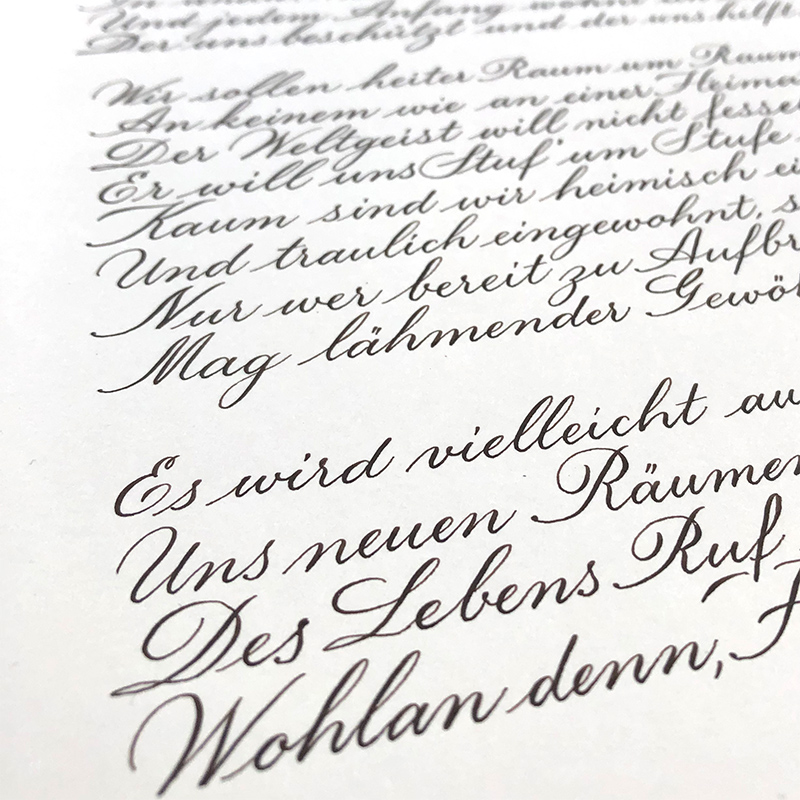 Und jedem Anfang wohnt
Der uns beschützt und der uns hilft
Wir sollen heiter Raum um Raum
An keinem wie an einer Heima
Der Weltgeist will nicht fesse
Er will uns Stuf' um Stufe
Kaum sind wir heimisch ei
Und traulich eingewohnt, s
Nur wer bereit zu Aufbr
Mag lähmender Gewöh
Es wird vielleicht au
Uns neuen Räumen
Des Lebens Ruf
Wohlan denn,